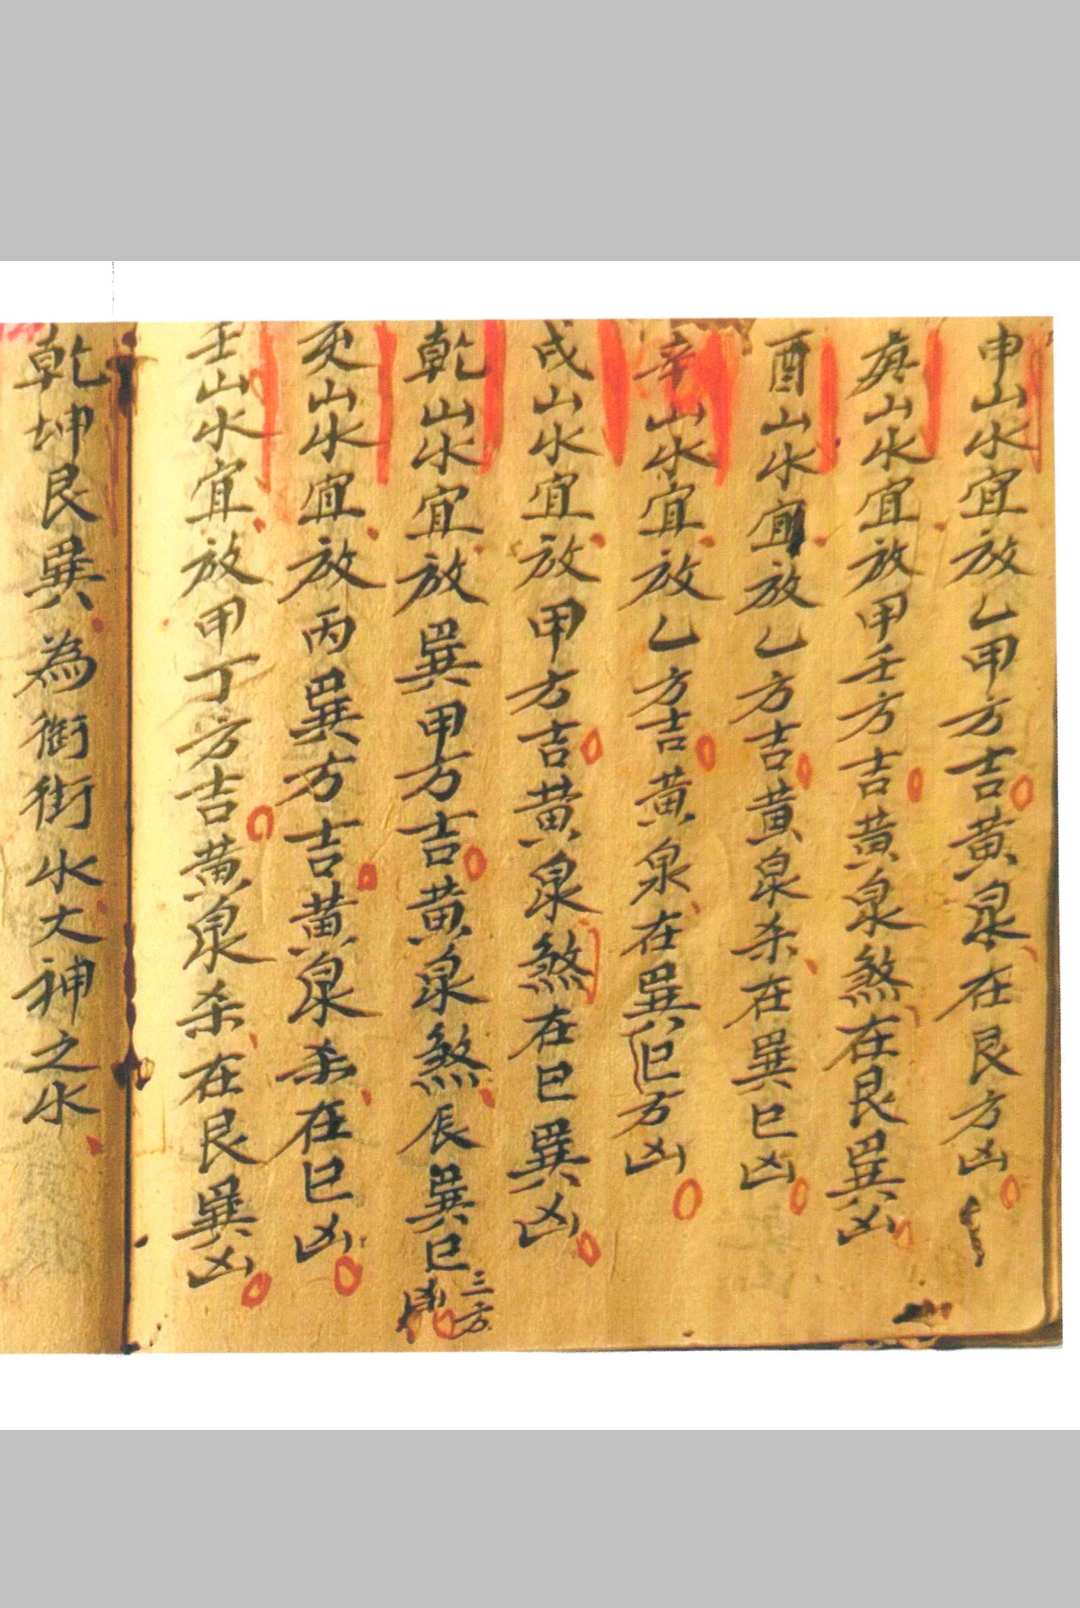 申山水宜放乙甲方吉黃泉在艮方凶
庚山水宜放甲壬方吉黃泉煞在艮巽凶
酉山水宜放乙方吉黃泉杀在巽巳凶
辛山水宜放乙方吉黃泉在巽巳方凶
戌山水宜放甲方吉黃泉煞在巳巽凶
乾山水宜放巽甲方吉黃泉煞辰巽巳三方凶
亥山水宜放丙巽方吉黃泉杀在巳凶
壬山水宜放甲丁方吉黃泉杀在艮巽凶
乾坤艮巽為御街水大神之水